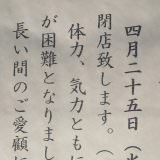 四月二十五日（
閉店致します。（
体力、気力ともに
が困難となりまし
長い間のご愛顧に